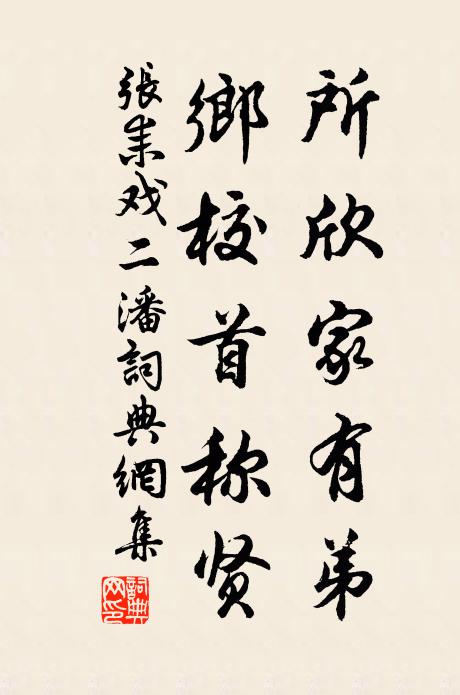 所欣家有弟
鄉校首称贤
張耒戏二潘詞典網集
詞典网印